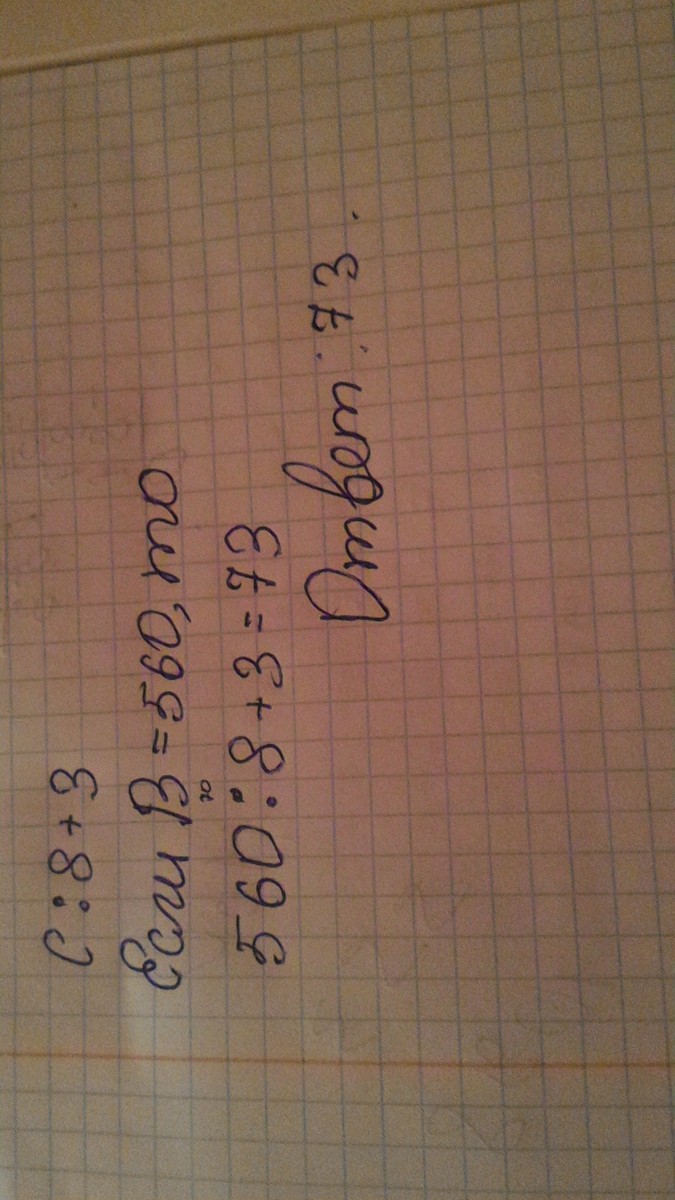 с:8+3
Если В=560, то
560:8+3=73
Ответ:73.